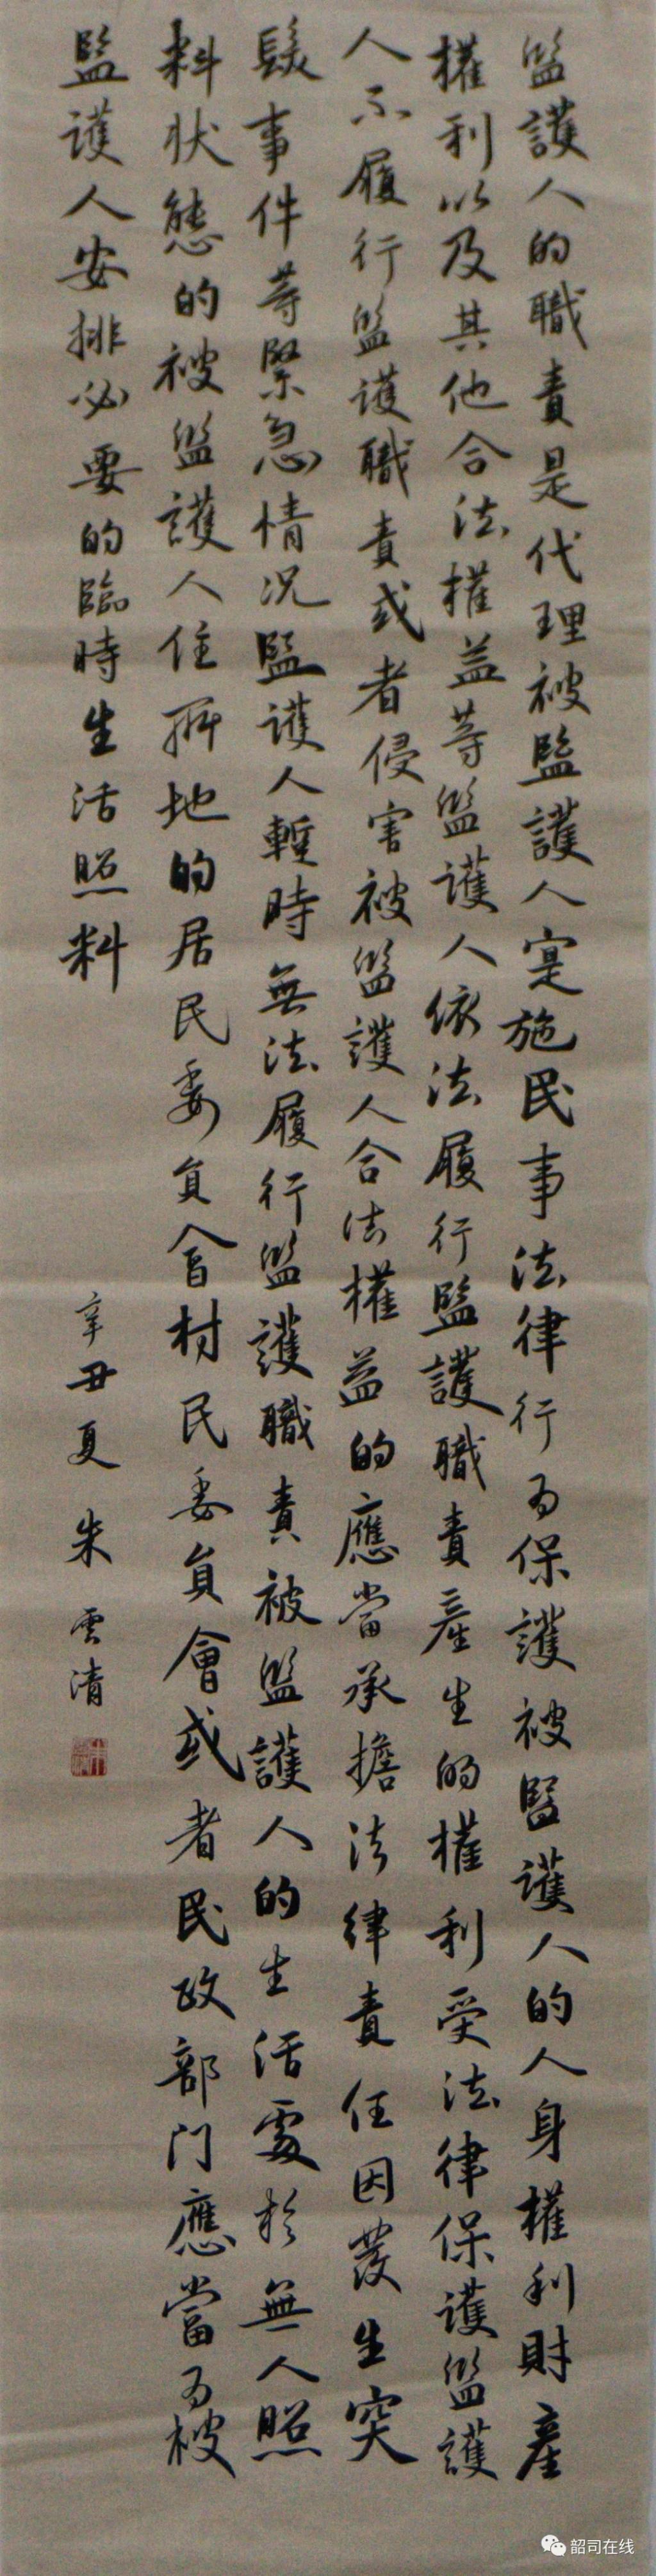 監護人的職責是代理被監護人寔施民事法律行為保護被監護人的人身權利財產
權利以及其他合法權益等監護人依法履行監護職責產生的權利受法律保護監護
人不履行監護職責或者侵害被監護人合法權益的應當承擔法律責任因發生突
發事件等緊急情况監護人暫時無法履行監護職責被監護人的生活處於無人照
料状態的被監護人住所地的居民委員會村民委員會或者民政部门應當為被
監護人安排必要的臨時生活照料
辛丑夏 朱雲清
韶司在线